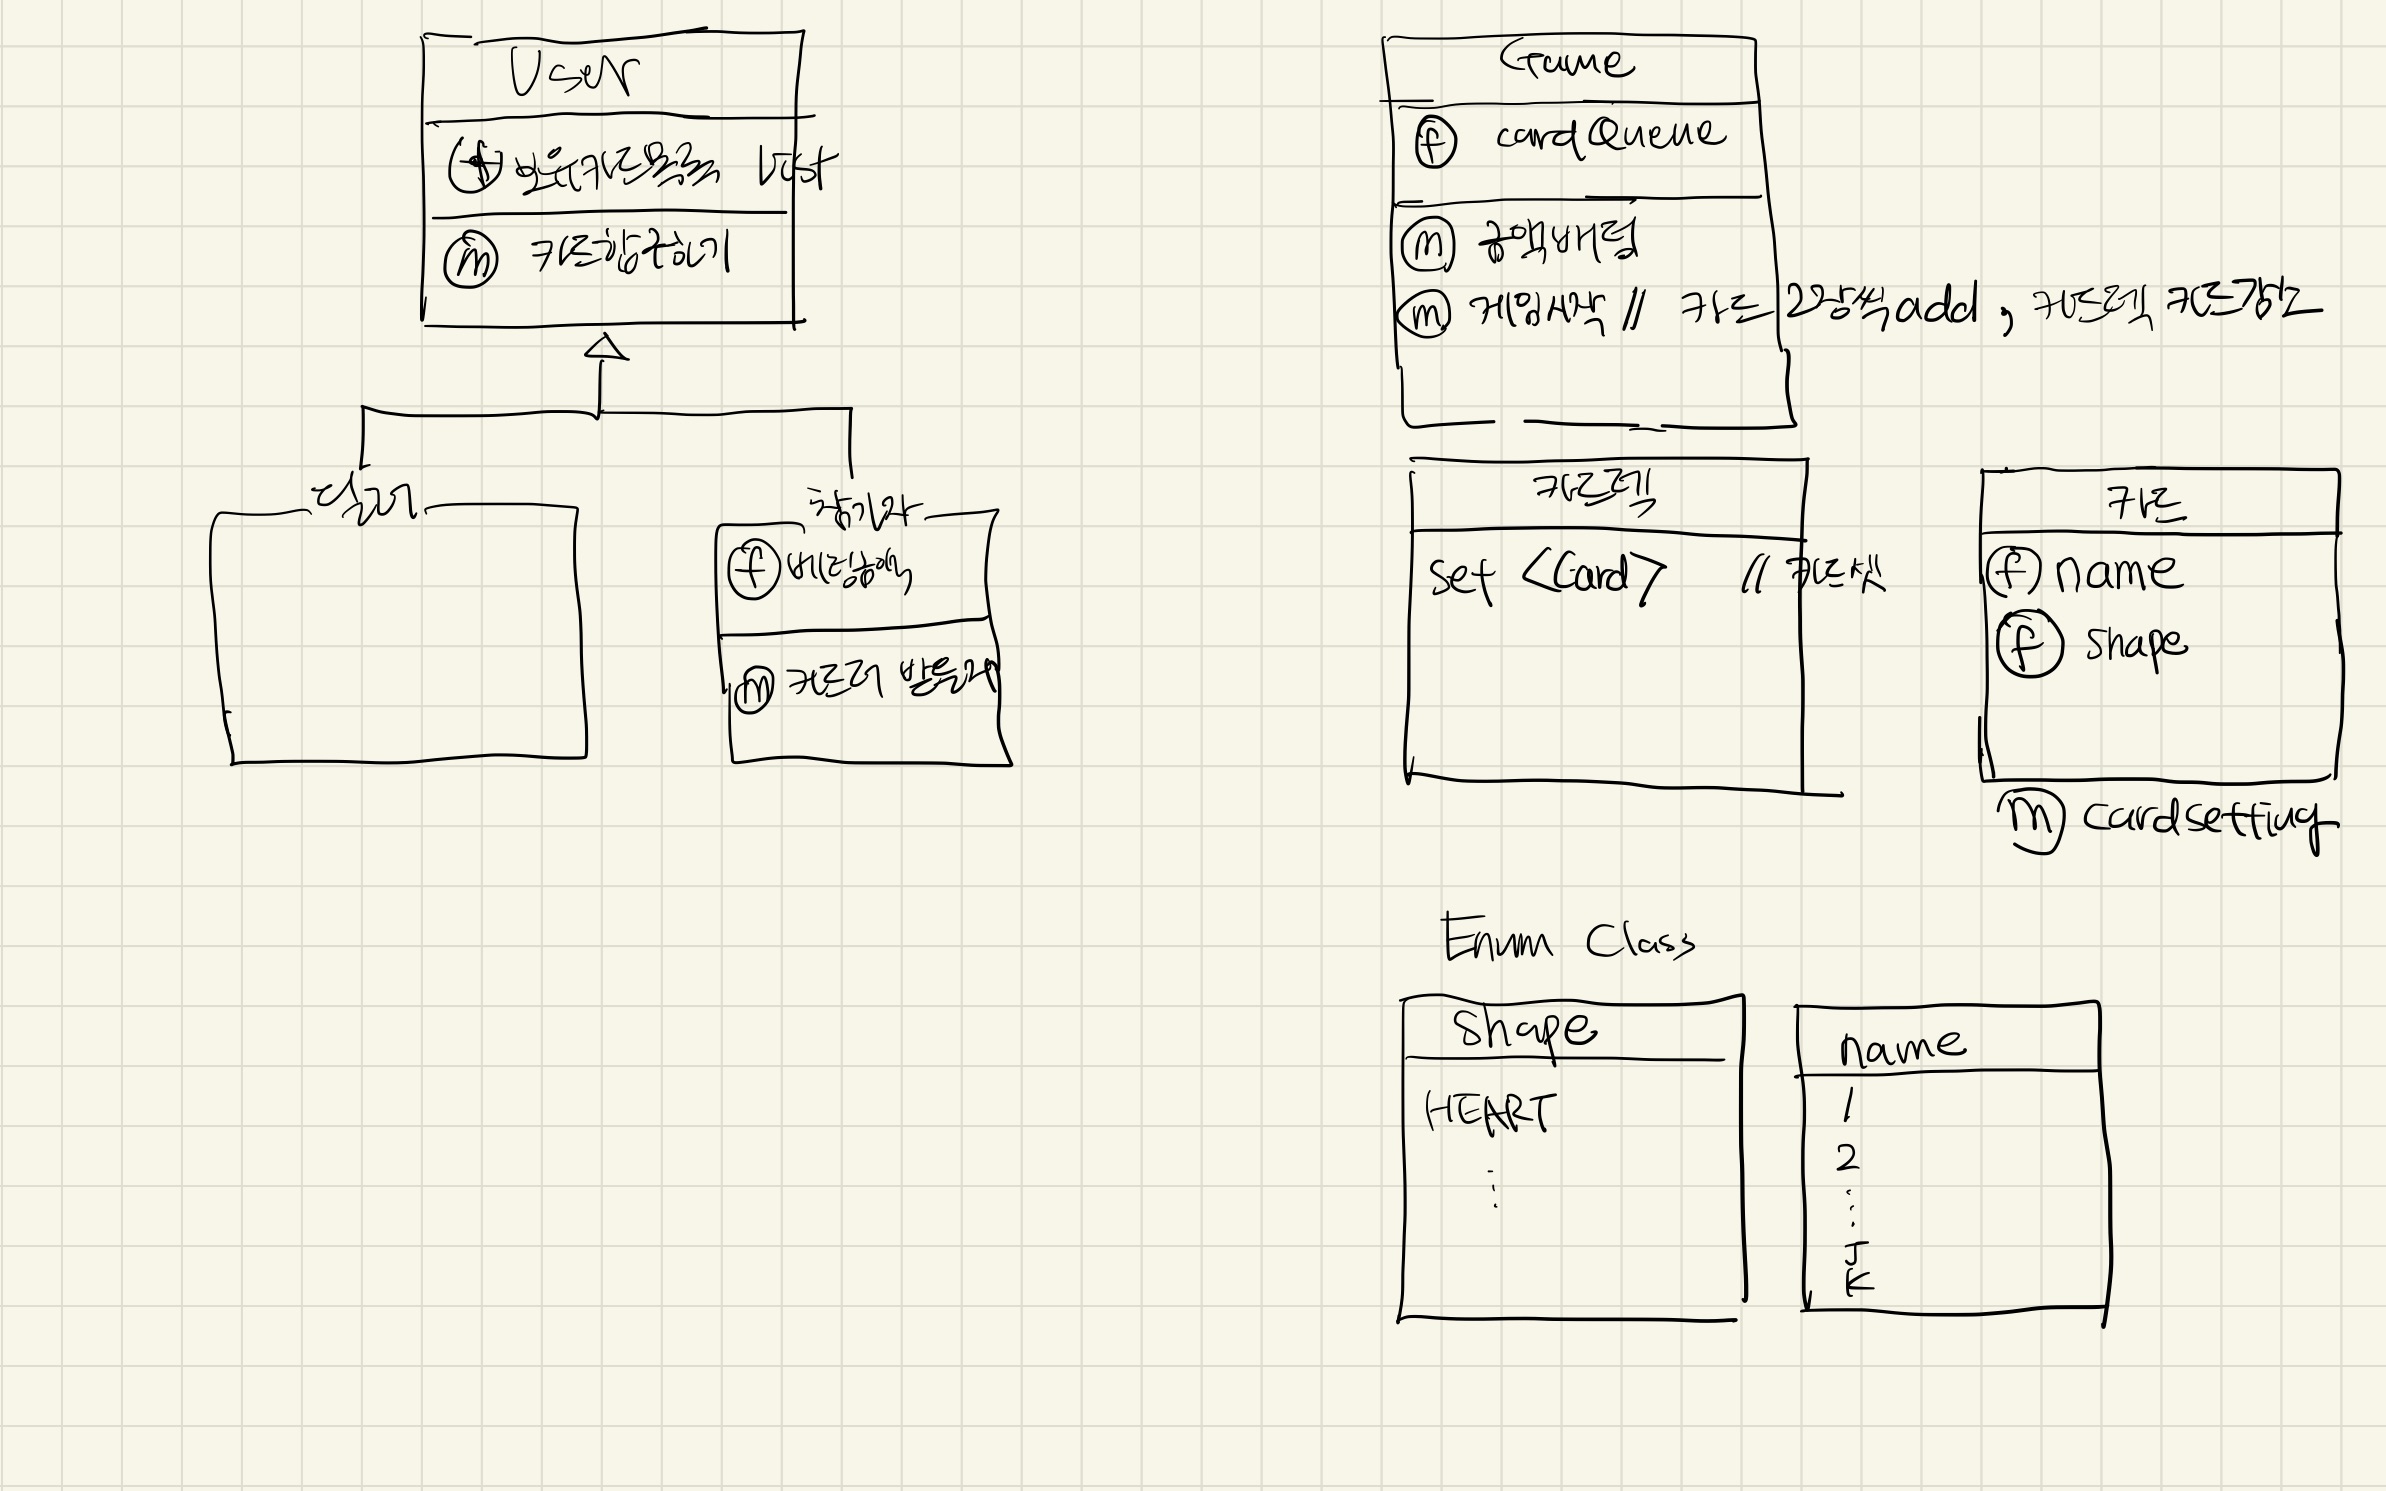 User
f 보유카드목록 List
m 카드합구하기
딜러
참가자
f 베팅금액
m 카드더 받을래
Game
f cardQueue
m 금액배팅
m 게임시작 // 카드 2장씩 add, 카드덱
카드덱
set <Card> // 카드셋
카드
f name
f shape
m cardsetting
Enum Class
shape
HEART
⋮
name
1
2
⋮
J
K